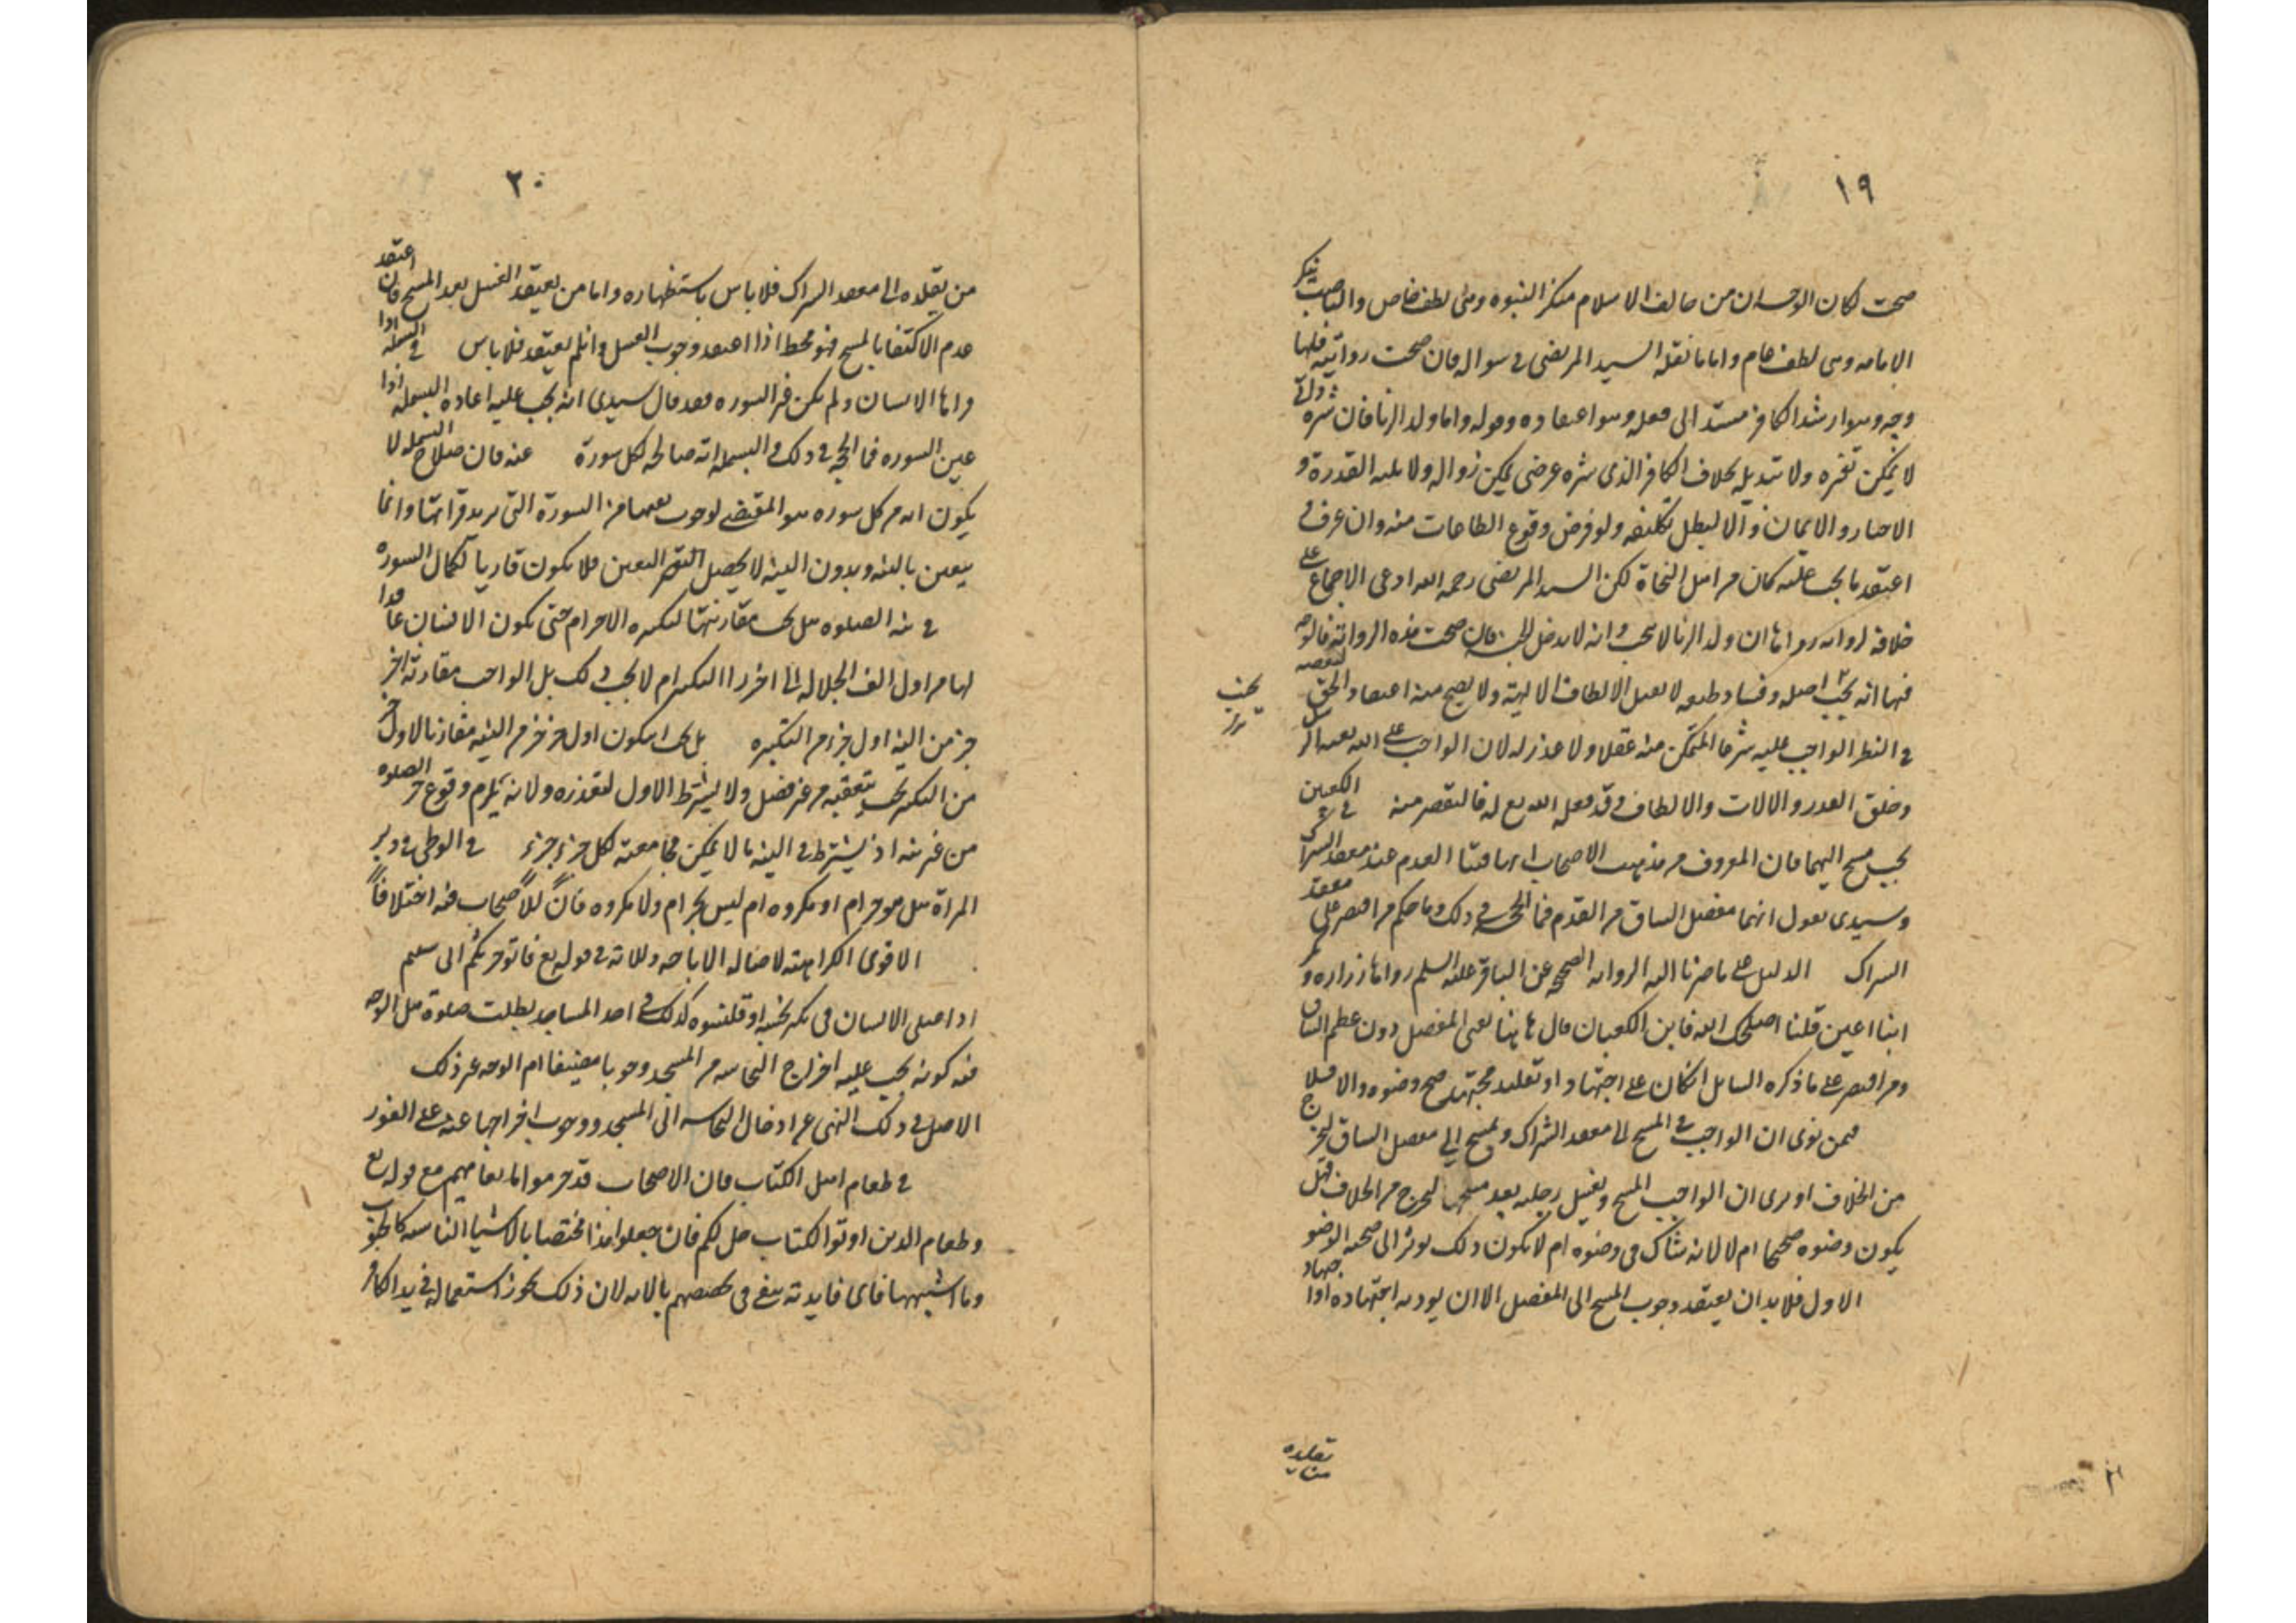 ١٩
صحت لكان الوجه ان من خالف الاسلام منكر النبوه وهي لطف خاص والناصب ينكر
الامامه وهى لطف عام واما ما نقله السيد المرتضى فى سواله فان صحت روايته فلها
وجه وهو ان شر الكافر مستند الى فعله وهو اعتقاده وقوله واما ولد الزنا فان شره ذاتي
لا يمكن تغيره ولا تبديله بخلاف الكافر الذى شره عرضى يمكن زواله ولا القدرة و
الاختيار والايمان والا لبطل تكليفه ولو فرض وقوع الطاعات منه وان عرف و
اعتقد ما يجب عليه كان من اهل النجاة لكن السيد المرتضى رحمه الله ادعى الاجماع على
خلافه لروايه رواها ان ولد الزنا لا ينجب وانه لا يدخل الجنه فان صحت هذه الروايه فالوجه
فيها انه يخبث اصله وفساد طبعه لا يقبل الالطاف الالهية ولا يصح منه اعتقاد الحق لتقصيره
فى النظر الواجب عليه شرعا المتمكن منه عقلا ولا عذر له لان الواجب على الله بعث الرسل
وخلق القدر والالات والالطاف وقد فعله الله تع له فالتقصير منه فى الكعبين
يجب مسح اليهما فان المعروف من مذهب الاصحاب انهما قبتا القدم عند معقد الشراك
وسيدى يقول انهما مفصل الساق من القدم فما الحجه فى ذلك وما حكم من اقتصر على معقد
الشراك الدليل على ما صرنا اليه الروايه الصحيحه عن الباقر عليه السلم رواها زراره وبكير
ابنا اعين قلنا اصلحك الله فاين الكعبان قال هاهنا يعنى المفصل دون عظم الساق
ومن اقتصر على ما ذكره السايل ان كان على اجتهاد او تقليد مجتهد صح وضوه والا فلا
فمن نوى ان الواجب فى المسح الى معقد الشراك ومسح الى مفصل الساق ليخرج
من الخلاف او يرى ان الواجب المسح ويغسل رجليه بعد مسحهما ليخرج من الخلاف فهل
يكون وضوه صحيحا ام لا لانه شاك فى وضوه ام لا يكون ذلك يوثر الى صحة الوضو
الاول فلا بد ان يعتقد وجوب المسح الى المفصل الا ان يوديه اجتهاده او اجتهاد
تقليده
٢٠
من يقلده الى معقد الشراك فلا باس باستظهاره واما من يعتقد الغسل بعد المسح فان اعتقد
عدم الاكتفا بالمسح فهو مخط اذا اعتقد وجوب الغسل وان لم يعتقد فلا باس فى البسمله اذا
قراها الانسان ولم يكن السوره فقد قال سيدى انه يجب عليه اعاده البسمله اذا
عين السوره فما الحجه فى ذلك والبسمله انها صالحه لكل سورة عنه فان صلاح البسمله لا
يكون انه من كل سوره هو المقتضى لوجوب من السورة التى يريد قراتها وانما
يتعين بالنيه وبدون النيه لا يحصل التعين فلا يكون قاريا لكمال السوره
فى نيه الصلوه هل يجب مقارنتها لتكبيره الاحرام حتى يكون الانسان
لها من اول الف الجلاله الى اخر را التكبير ام لا يجب ذلك بل الواجب مقارنة اخر
جز من النيه اول جز من التكبيره بل يجب ان يكون اول جز من النيه مقارنا لاول جز
من التكبير بحيث يتعقبه من غير فصل ولا يشترط الاول لتعذره ولانه يلزم وقوع جز الصلوه
من غير نيه اذ يشترط فى النيه ما لا يمكن مجامعته لكل جزء جزء فى الوطى فى دبر
المراة هل هو حرام او مكروه ام ليس بحرام ولا مكروه فان للاصحاب فيه اختلافا
الاقوى الكراهيه لاصاله الاباحه ودلالته فى قوله تع فاتوا حرثكم انى شيتم
اذا صلى الانسان فى تكه نجسه او قلنسوه كذلك فى احد المساجد بطلت صلوة هل الوجه
فيه كونه يجب عليه اخراج النجاسه من المسجد وجوبا مضيقا ام الوجه غير ذلك
الاصل فى ذلك النهى عن ادخال النجاسه الى المسجد ووجوب اخراجها عنه على الفور
فى طعام اهل الكتاب فان الاصحاب قد حرموا المايعات منهم مع قوله تع
وطعام الذين اوتوا الكتاب حل لكم فان جعلوا هذا مختصا بالاشيا اليابسه كالحبوب
وما اشبهها فاى فايده تبقى فى تخصيصهم بالايه لان ذلك يجوز استعماله فى يد الكافر